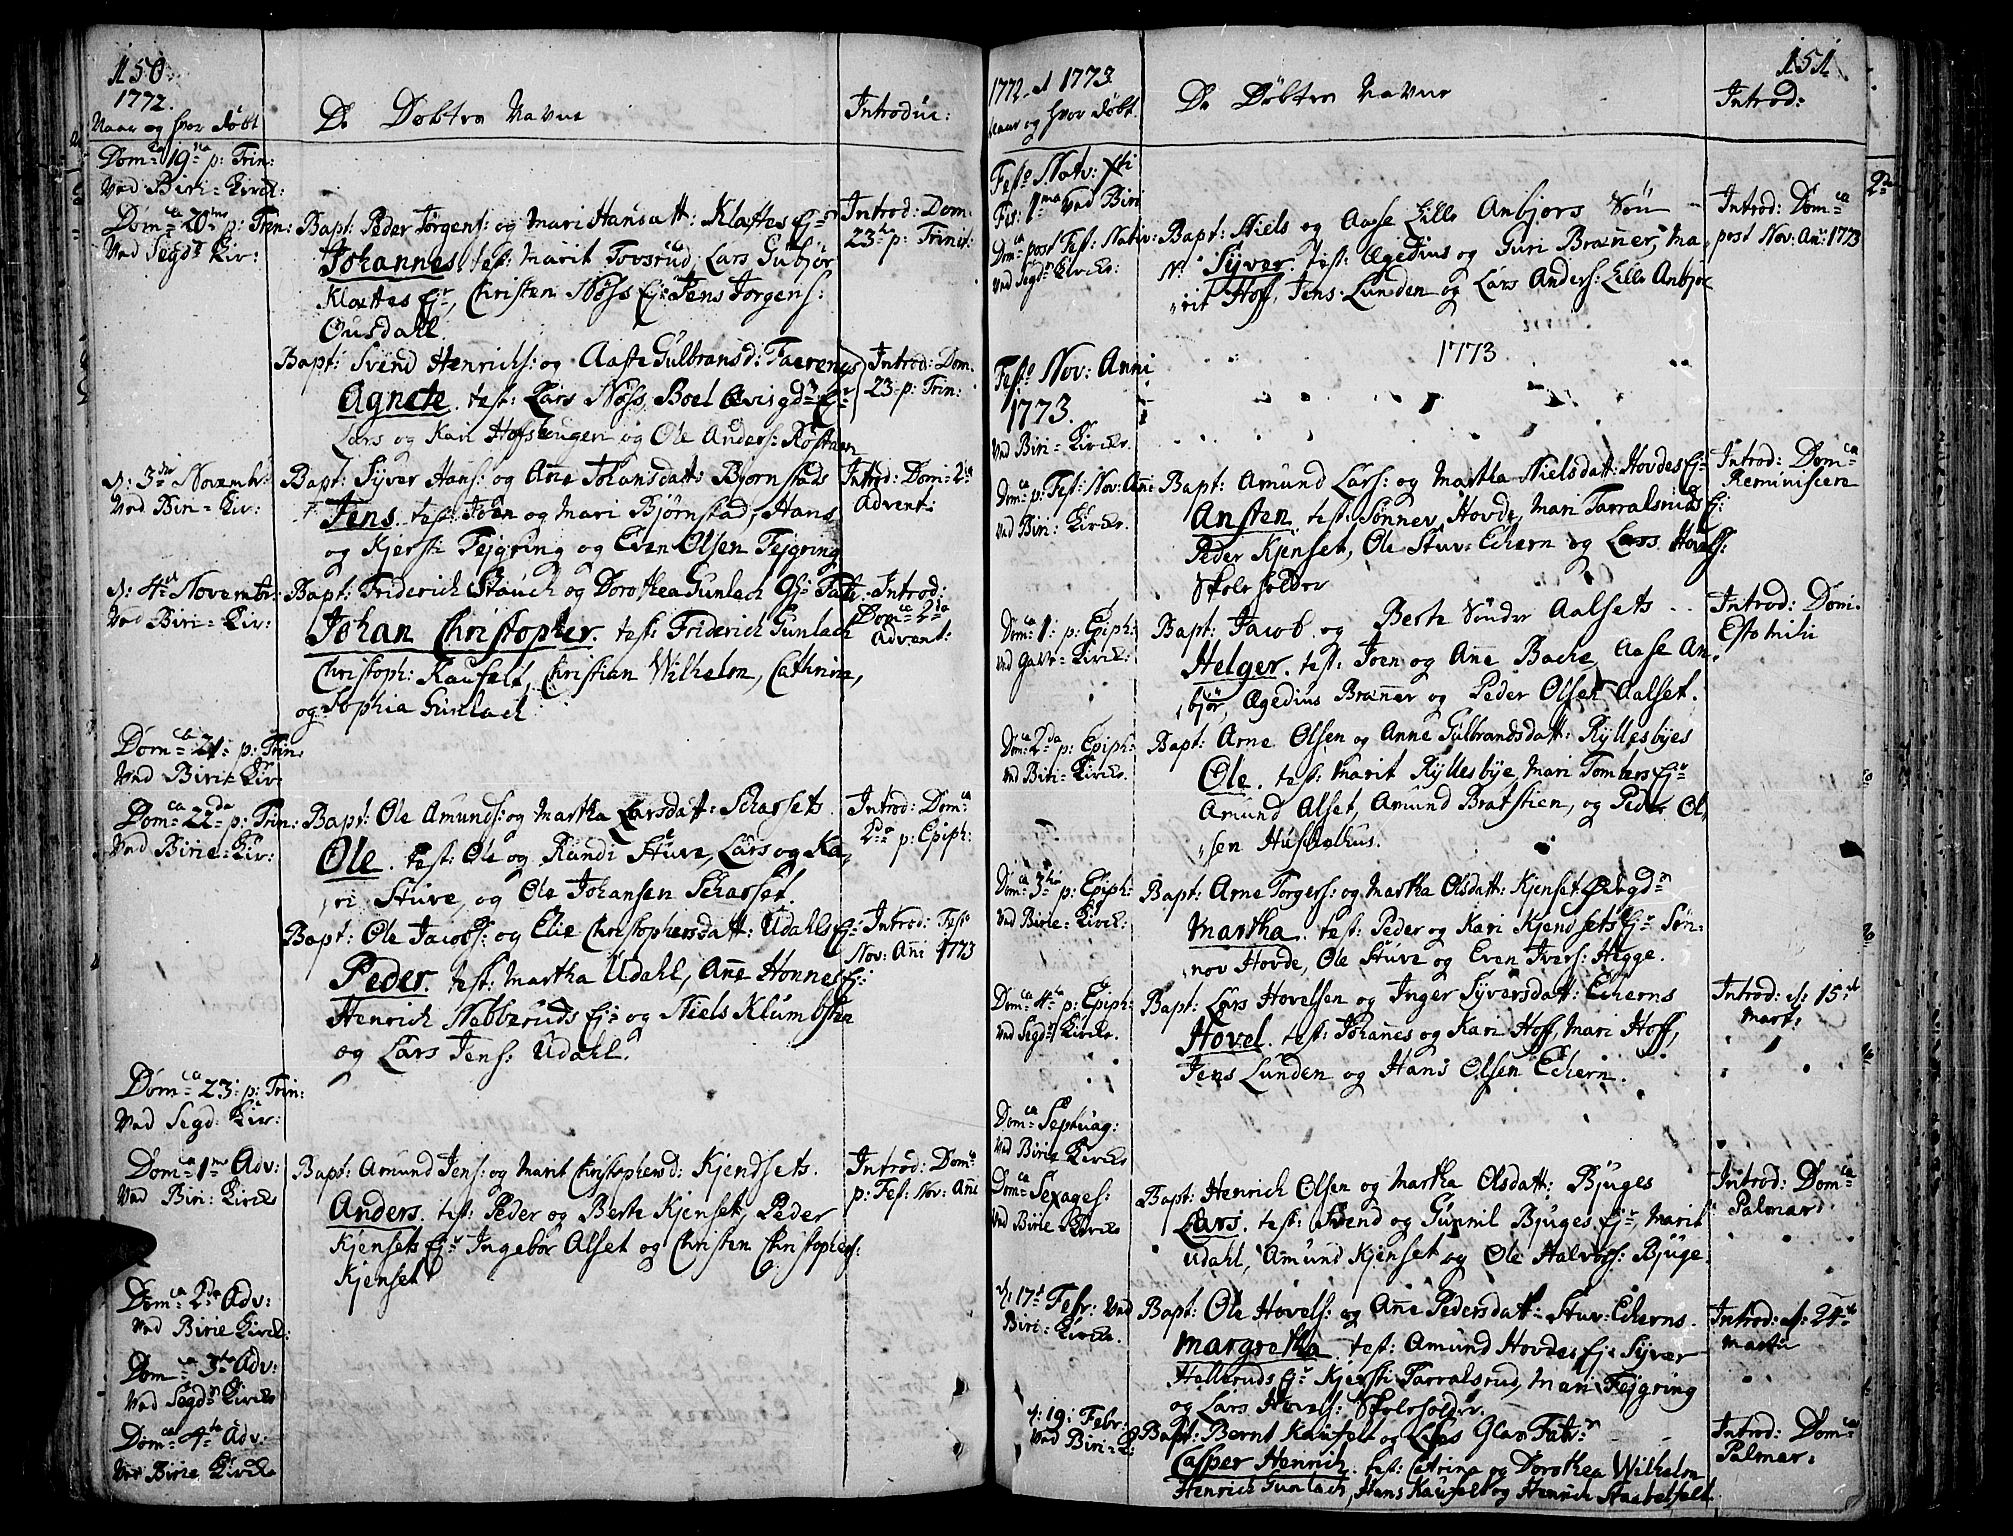 150
1772.
Naar og hvor døbt
De Døbtes Navne
Introduc:
Domca 19na p: Trin:
Ved Biri=Kirck:
Domca 20ma p: Trin:
Ved Segd: Kir:
Bapt: Peder Jørgens: og Mari Hansdatt: Klættes Ejr
Johannes. test: Marit Lars Gubjør
Klættes Ejr, Christen Nøss Ej: Jens Jørgens:
Introd: Dom.
23 p: Trinit:
Bapt: Svend Henrichs: og Aaste Gulbransd: Faerengs
Agnete. test: Lars Nøss, Boel Ejr
Lars og Kari og Ole Anders:
Introd: Dom.
23 p: Trin:
d: 3die Novembr:
Ved Biri=Kir:
Bapt: Syver Hans: og Añe Johansdatt: Bjørnstads
Jens. test: Joen og Mari Bjørnstad, Hans
og Kjersti Fejgring og Even Olsen Fejgring
Introd: Dom: 2da
Advent:
d: 4de Novembr:
Ved Biri=Kir:
Bapt: Friderich Stauch og Dorothea Gunlach Gls: Fabr.
Johan Christopher. test: Friderich Gunlach
Christoph: Kaufelt, Christian Wilhelm, Cathrina,
og Sophia Gunlach
Introd:
Domca 2da
Advent:
Domca 21 p: Trin:
Ved Biri=Kir:
Domca 22da p: Trin:
Ved Birie=Kir:
Bapt: Ole Amunds: og Martha Larsdatt: Scharsets
Ole. test: Ole og Rundi Stuve, Lars og Ka,
,ri Stuve, og Ole Johansen Scharset.
Introd: Domca
2da p: Epiph:
Bapt: Ole Jacobs: og Elie Christophersdatt: Udahls Ejr
Peder. test: Martha Udahl, Añe Honnes Ej:
Henrich Nebberuds Ej: og Niels Klumbsten
og Lars Jens: Udahl.
Introd: Festo
Nov: Añi 1773
Domca 23: p: Trin:
Ved Segd: Kir:
Domca 1ma Adv:
Ved Biri: Kircke
Bapt: Amund Jens: og Marit Christophersd: Kjendsets.
Anders. test: Peder og Berte Kjenset, Peder
Kjensets Ejr Ingebor Alset og Christen Christophers:
Kjenset
Introd: Domca
p: Fes: Nov: Añi
Domca 2da Adv:
Ved Birie Kirck:
Domca 3tia Adv:
Ved Segd: Kircke
Domca 4ta Adv:
Ved Birie Kircke
151
1772 et 1773.
Naar og hvor døbt
De Døbtes Navne
Introd:
Festo Nativ: Xti
Fes: 1ma Ved Biri
Domca post Fes: Nativ:
Ved Segd: Kircke:
Bapt: Niels og Aase Lille Anbjørs Søn
Syver. test: Ægedius og Guri Brañer, Ma,
,rit Hoff, Jens Lunden og Lars Anders: Lille Anbjør
Introd: Domca
post Nov: An: 1773
Festo Nov: Anni
1773.
Ved Biri=Kircke.
1773
Domca p: Fes: Nov: Añi
Ved Biri: Kircke.
Bapt: Amund Lars: og Martha Nielsdatt: Hovdes Ejr
Ansten. test: Sønnev Hovde, Mari Tarralsruds Ej:
Peder Kjenset, Ole Stuv=Echern og Lars Hovels:
Skoleholder
Introd: Domca
Reminiscere
Domca 1: p: Epiph:
Ved Galv=Kirck:
Bapt: Jacob og Berte Sønder Aalsets
Helger. test: Joen og Añe Bache, Aase An,
,bjør, Ægedius Brañer og Peder Olsen Aalset.
Introd: Dom.
Estomihi
Domca 2da p: Epiph:
Ved Biri: Kircke.
Bapt: Arne Olsen og Anne Gulbrandsdatt: Kyllesbyes
Ole. test: Marit Kyllesbye, Mari Tomters Ejr
Amund Alset, Amund Bratstien, og Peder Ol,
,sen Huskelhus.
Domca 3tia p: Epiph:
Ved Birie=Kirck:
Bapt: Arne Torgers: og Martha Olsdatt: Kjenset
Martha. test: Peder og Kari Kjendsets Ejr Søn,
,nov Hovde, Ole Stuve og Even Ivers: Hegge.
Domca 4ta p: Epiph:
Ved Segd: Kircke.
Bapt: Lars Hovelsen og Inger Syversdatt: Echerns
Hovel. test: Johañes og Kari Hoff, Mari Hoff,
Jens Lunden og Hans Olsen Echern.
Introd: d: 15de
Mart:
Domca Septuag:
Ved Birie Kircke
Domca Sexages:
Ved Birie Kircke
Bapt: Henrich Olsen og Martha Olsdatt: Bjuges
Lars. test: Svend og Gunnil Bjuges Ejr, Marit
Udahl, Amund Kjenset og Ole Halvors: Bjuge.
Introd: Domca
Palmar:
d: 17de Febr: Ved
Biri=Kircke.
Bapt: Ole Hovels: og Añe Pedersdatt: Stuv=Echerns.
Margretha. test: Amund Hovdes Ej: Syver
Helleruds Ejr Kjersti Tarralsrud, Mari Fejgring
og Lars Hovels: Skoleholder.
Introd: d: 24de
Martii
d: 19: Febr:
Ved Biri=K:
Bapt: Bernt Kaufelt og Lises Glas Fabr:
Casper Henrich. test: Catrina og Dorothea Wilhelm
Henrich Gunlach, Hans Kaufelt og Henrich
Introd: Domca
Palmar: